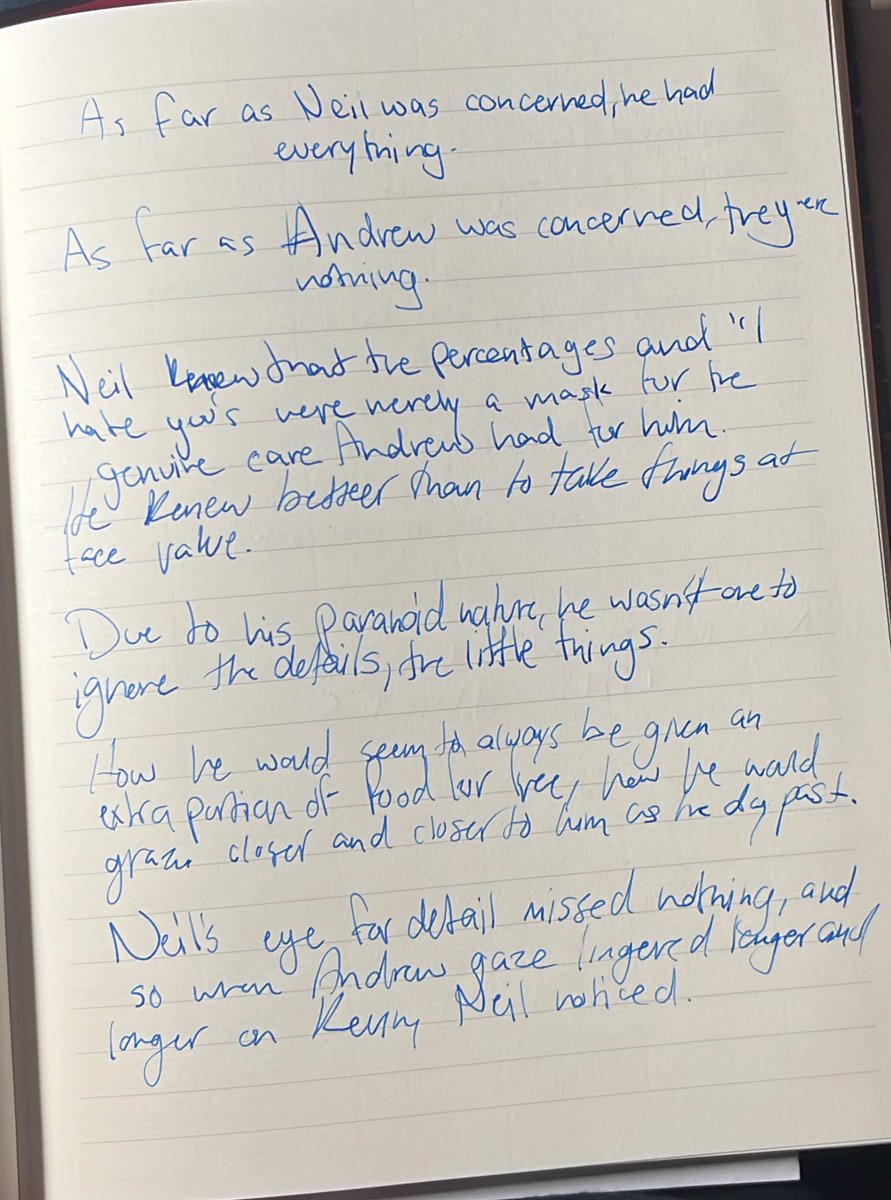 As far as Neil was concerned, he had
everything.
As far as Andrew was concerned, they're
nothing.
Neil knew that the percentages and "I
hate you's were merely a mask for the
genuine care Andrew had for him.
He knew better than to take things at
face value.
Due to his paranoid nature, he wasn't one to
ignore the details, the little things.
How he would seem to always be given an
extra portion of food for free, how he would
graze closer and closer to him as the day past.
Neil's eye for detail missed nothing, and
so when Andrew gaze lingered longer and
longer on Neil noticed.